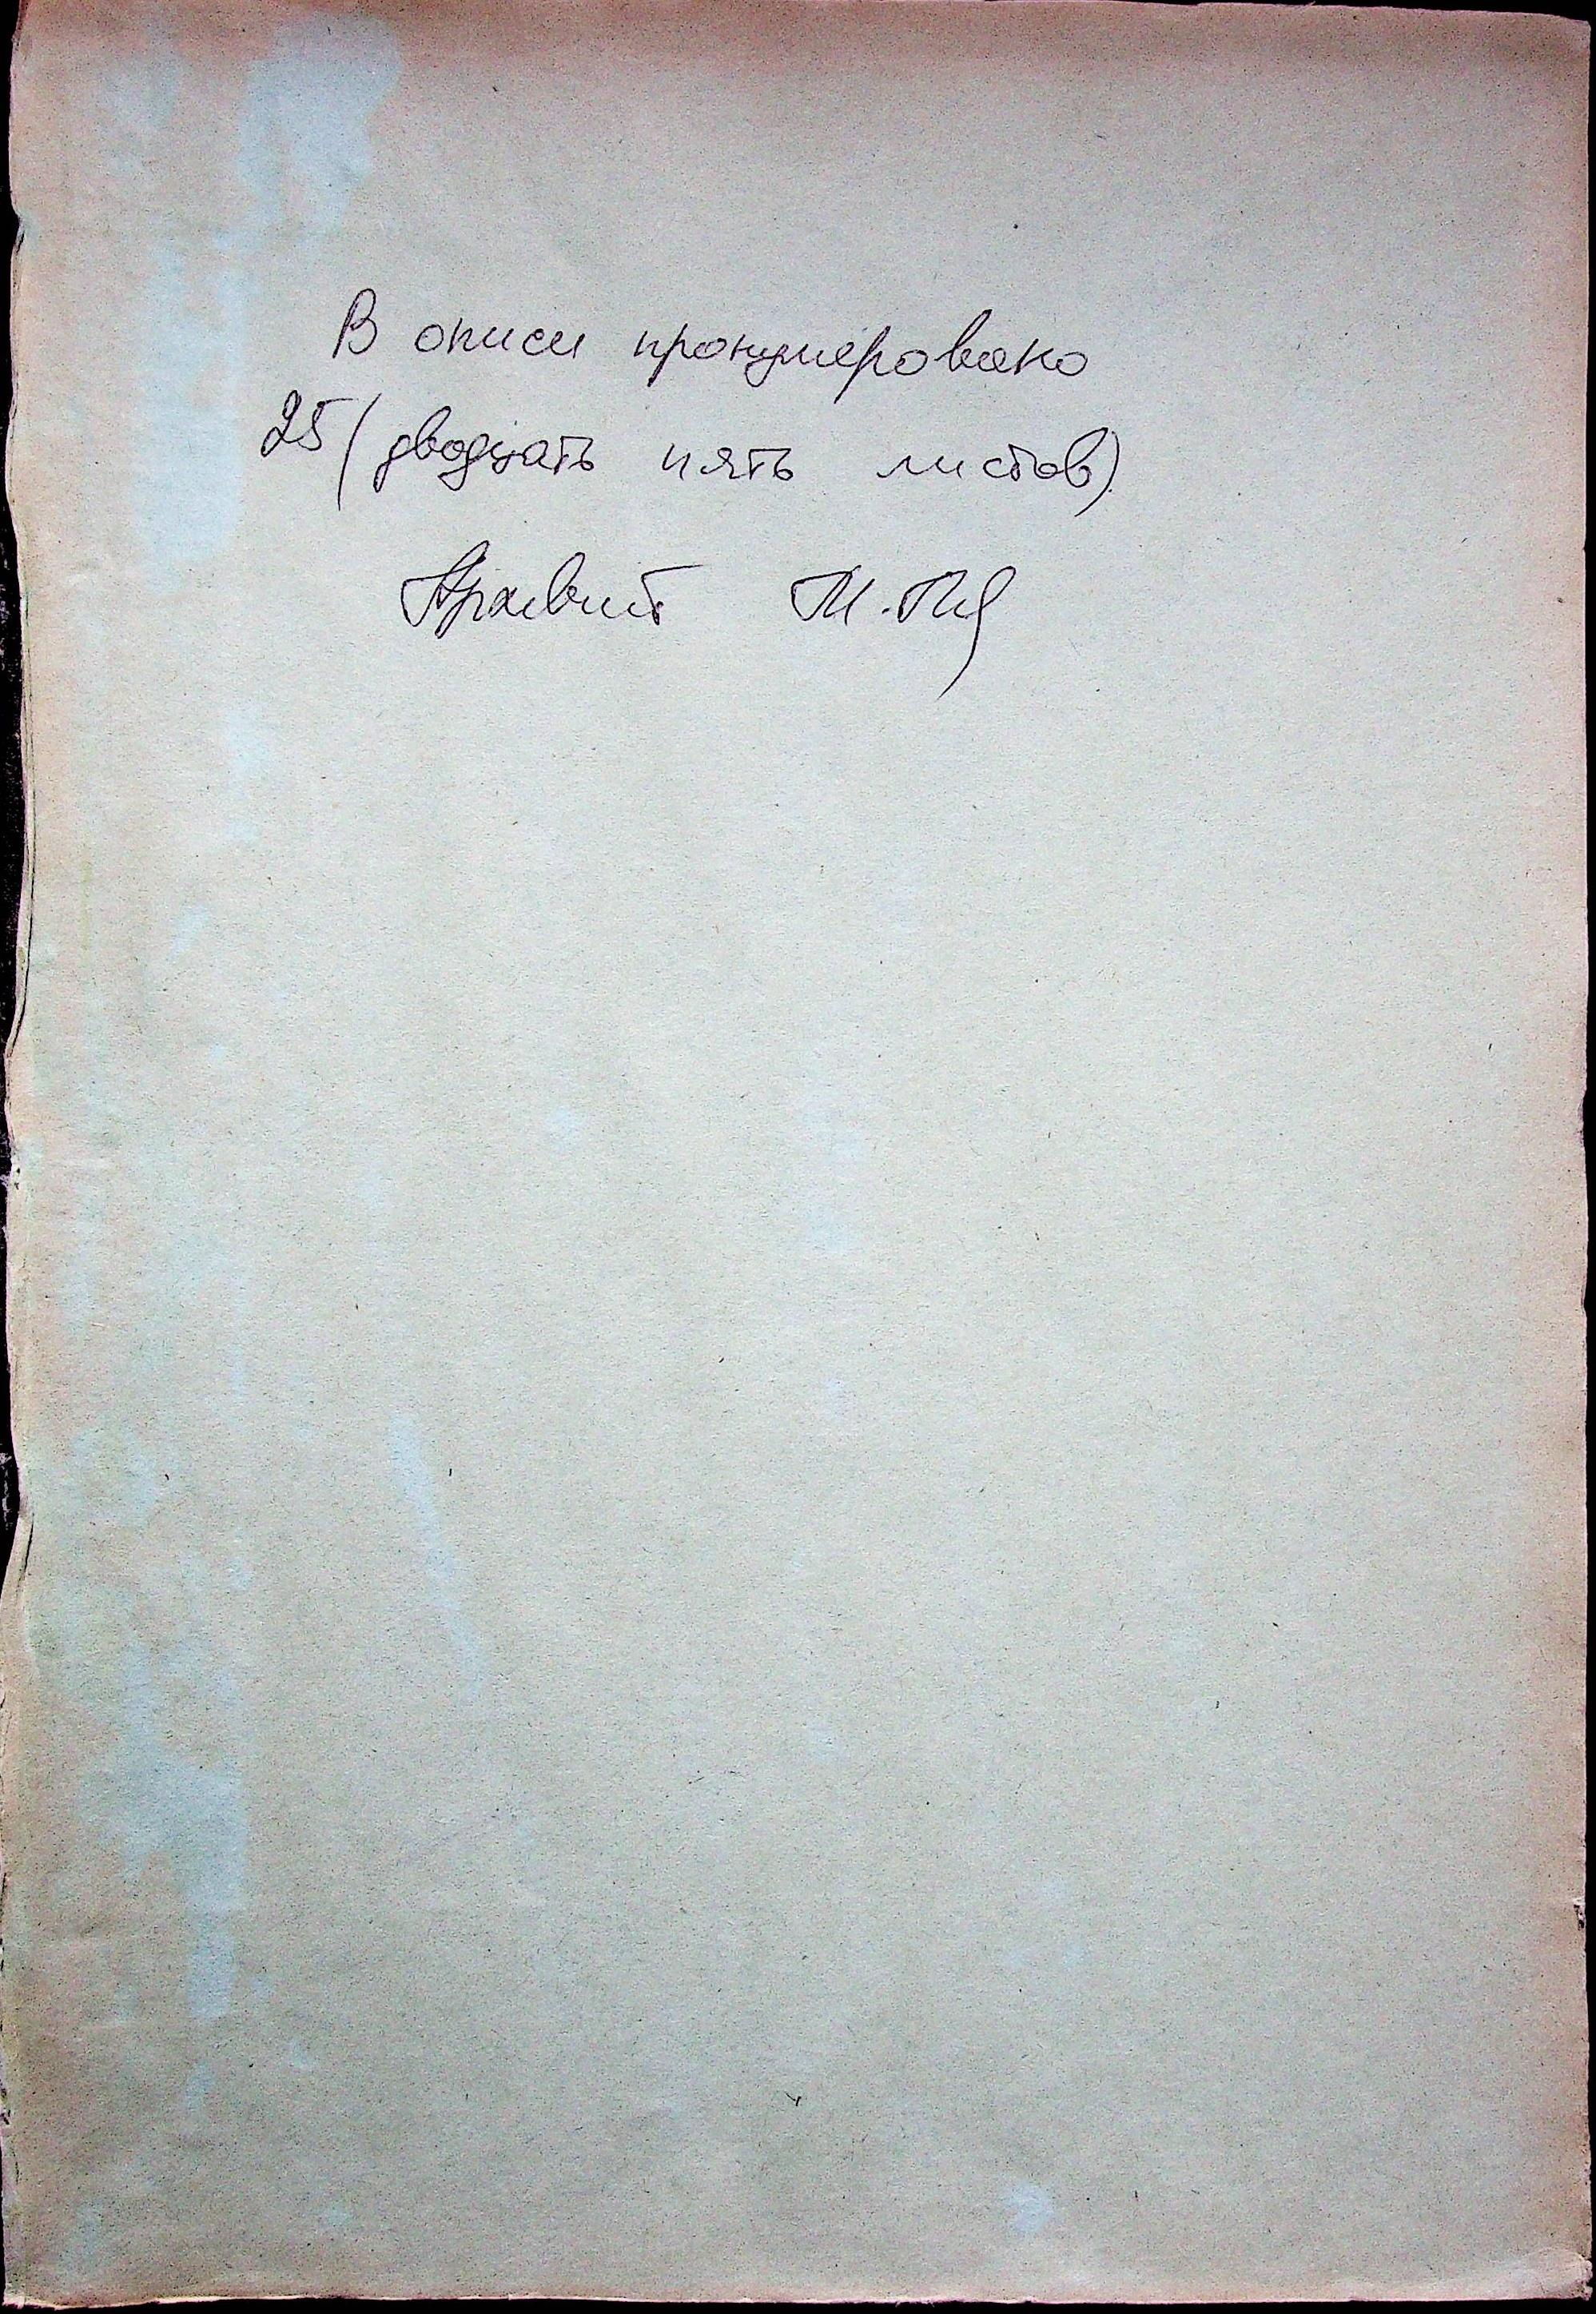 В описи пронумеровано
25 (двадцать пять листов).
Архивист